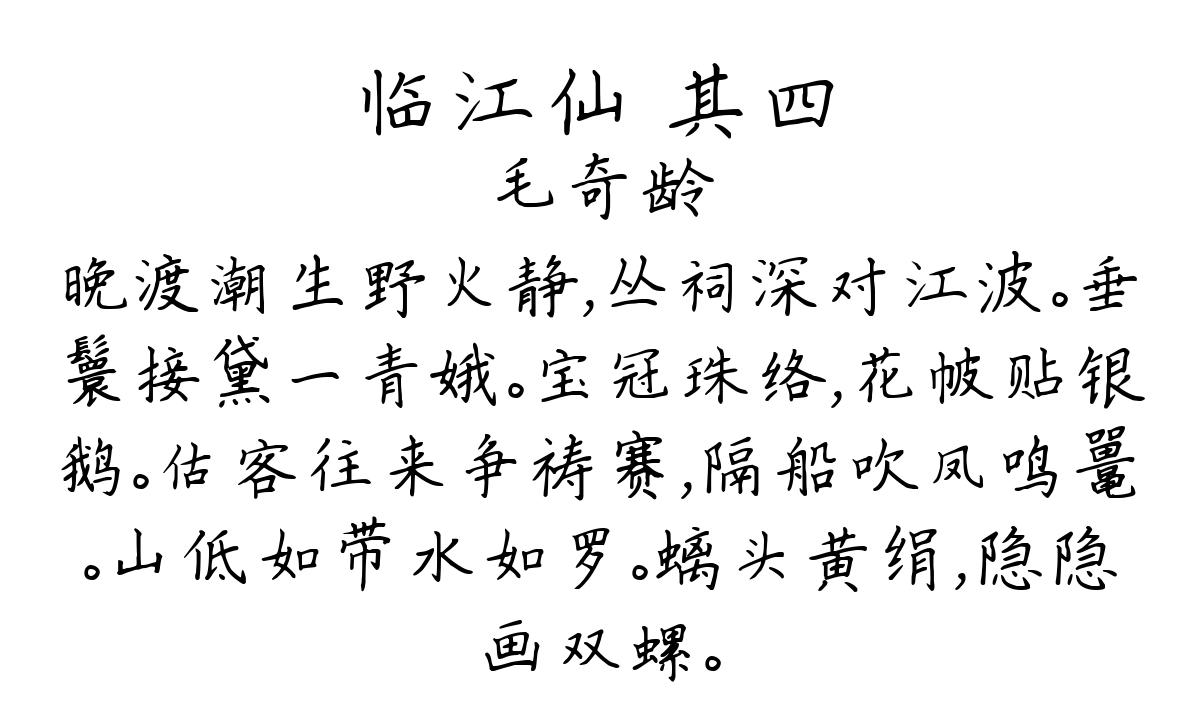 临江仙 其四
毛奇龄
晚渡潮生野火静,丛祠深对江波。垂
鬟接黛一青娥。宝冠珠络,花帔贴银
鹅。估客往来争祷赛,隔船吹凤鸣鼍
。山低如带水如罗。螭头黄绢,隐隐
画双螺。